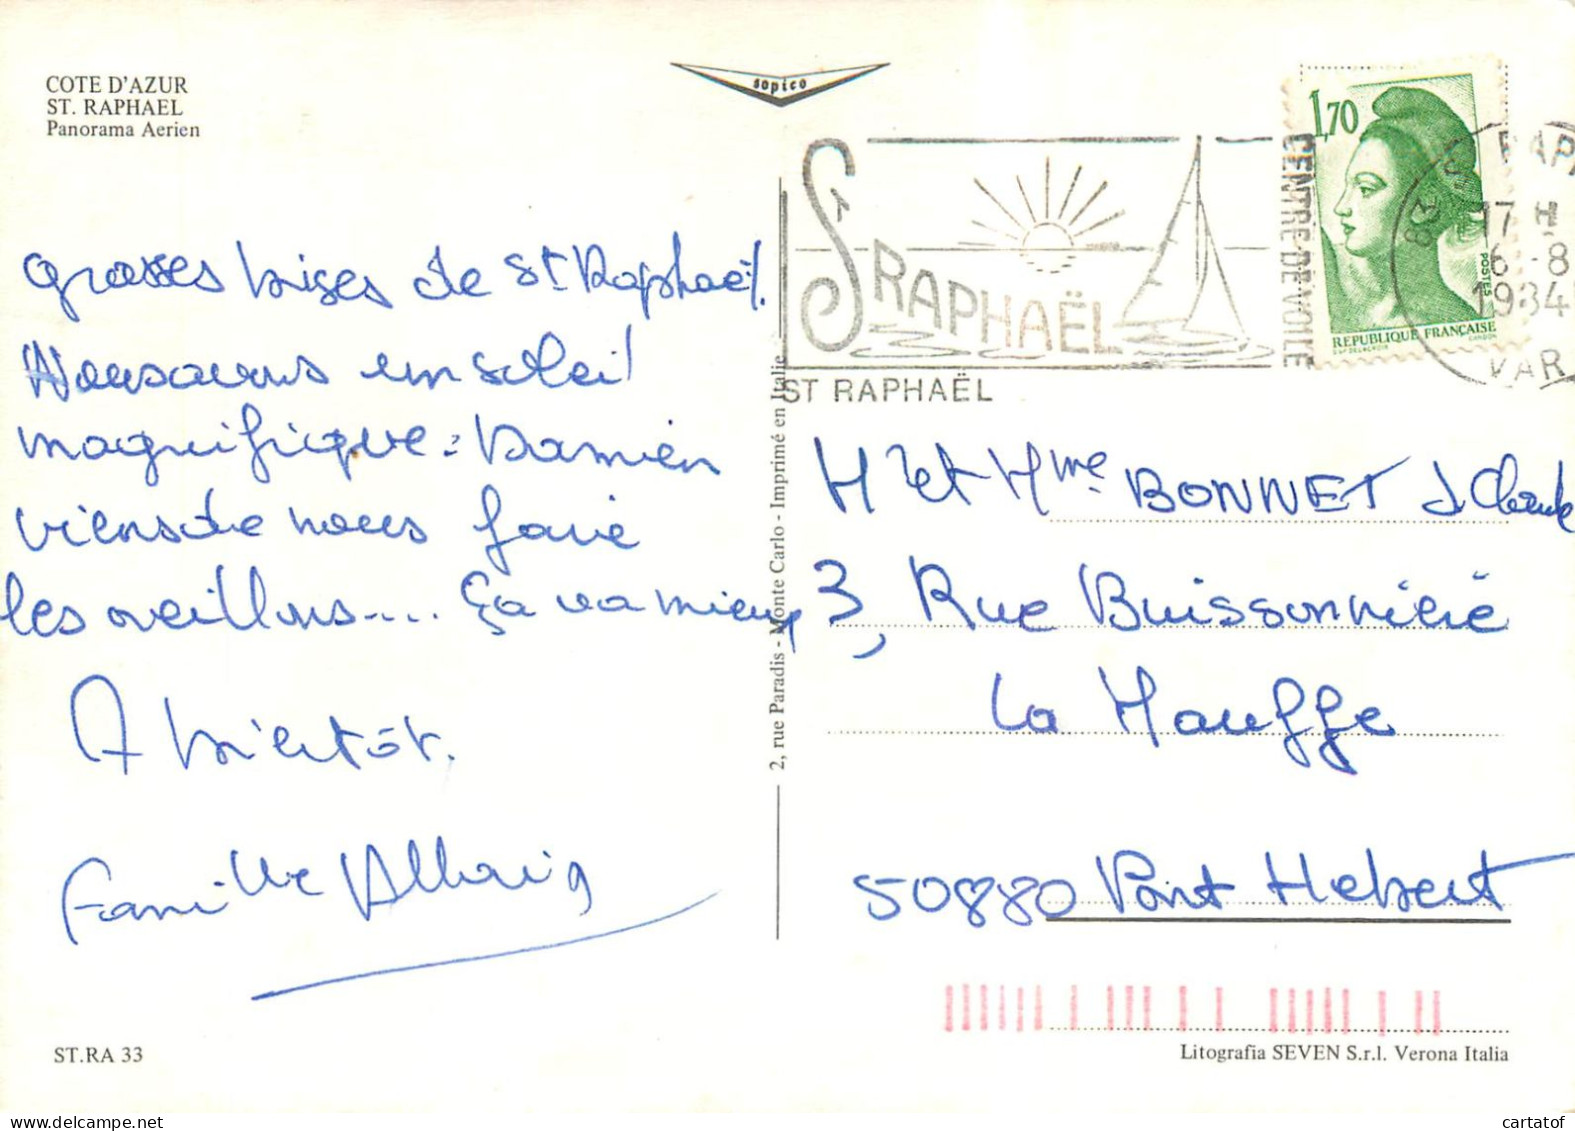 COTE D'AZUR
ST. RAPHAEL
Panorama Aerien
sopico
1,70
POSTES
REPUBLIQUE FRANÇAISE
St RAPHAËL
CENTRE DE VOILE
ST RAPHAËL
83
17 H
6 -8
1984
VAR
Grosses bises de St Raphaël.
Nous avons un soleil
magnifique. Damien
viens de nous faire
les oreillons.... Ça va mieux
A bientôt.
Famille
Mr et Mme BONNET J Claude
3, Rue Buissonnière
La Hauffge
50880 Pont Hebert
2, rue Paradis - Monte Carlo - Imprimé en Italie
ST.RA 33
Litografia SEVEN S.r.l. Verona Italia
cartatof